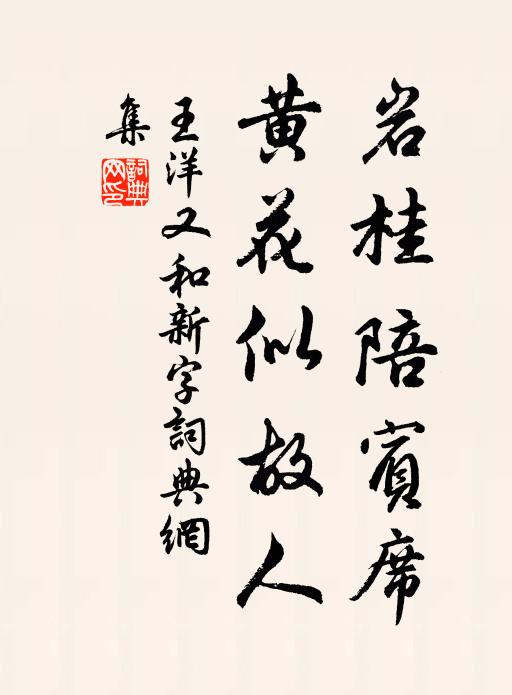 岩桂陪賓席
黃花似故人
王洋又和新字詞典網
集
詞典網印